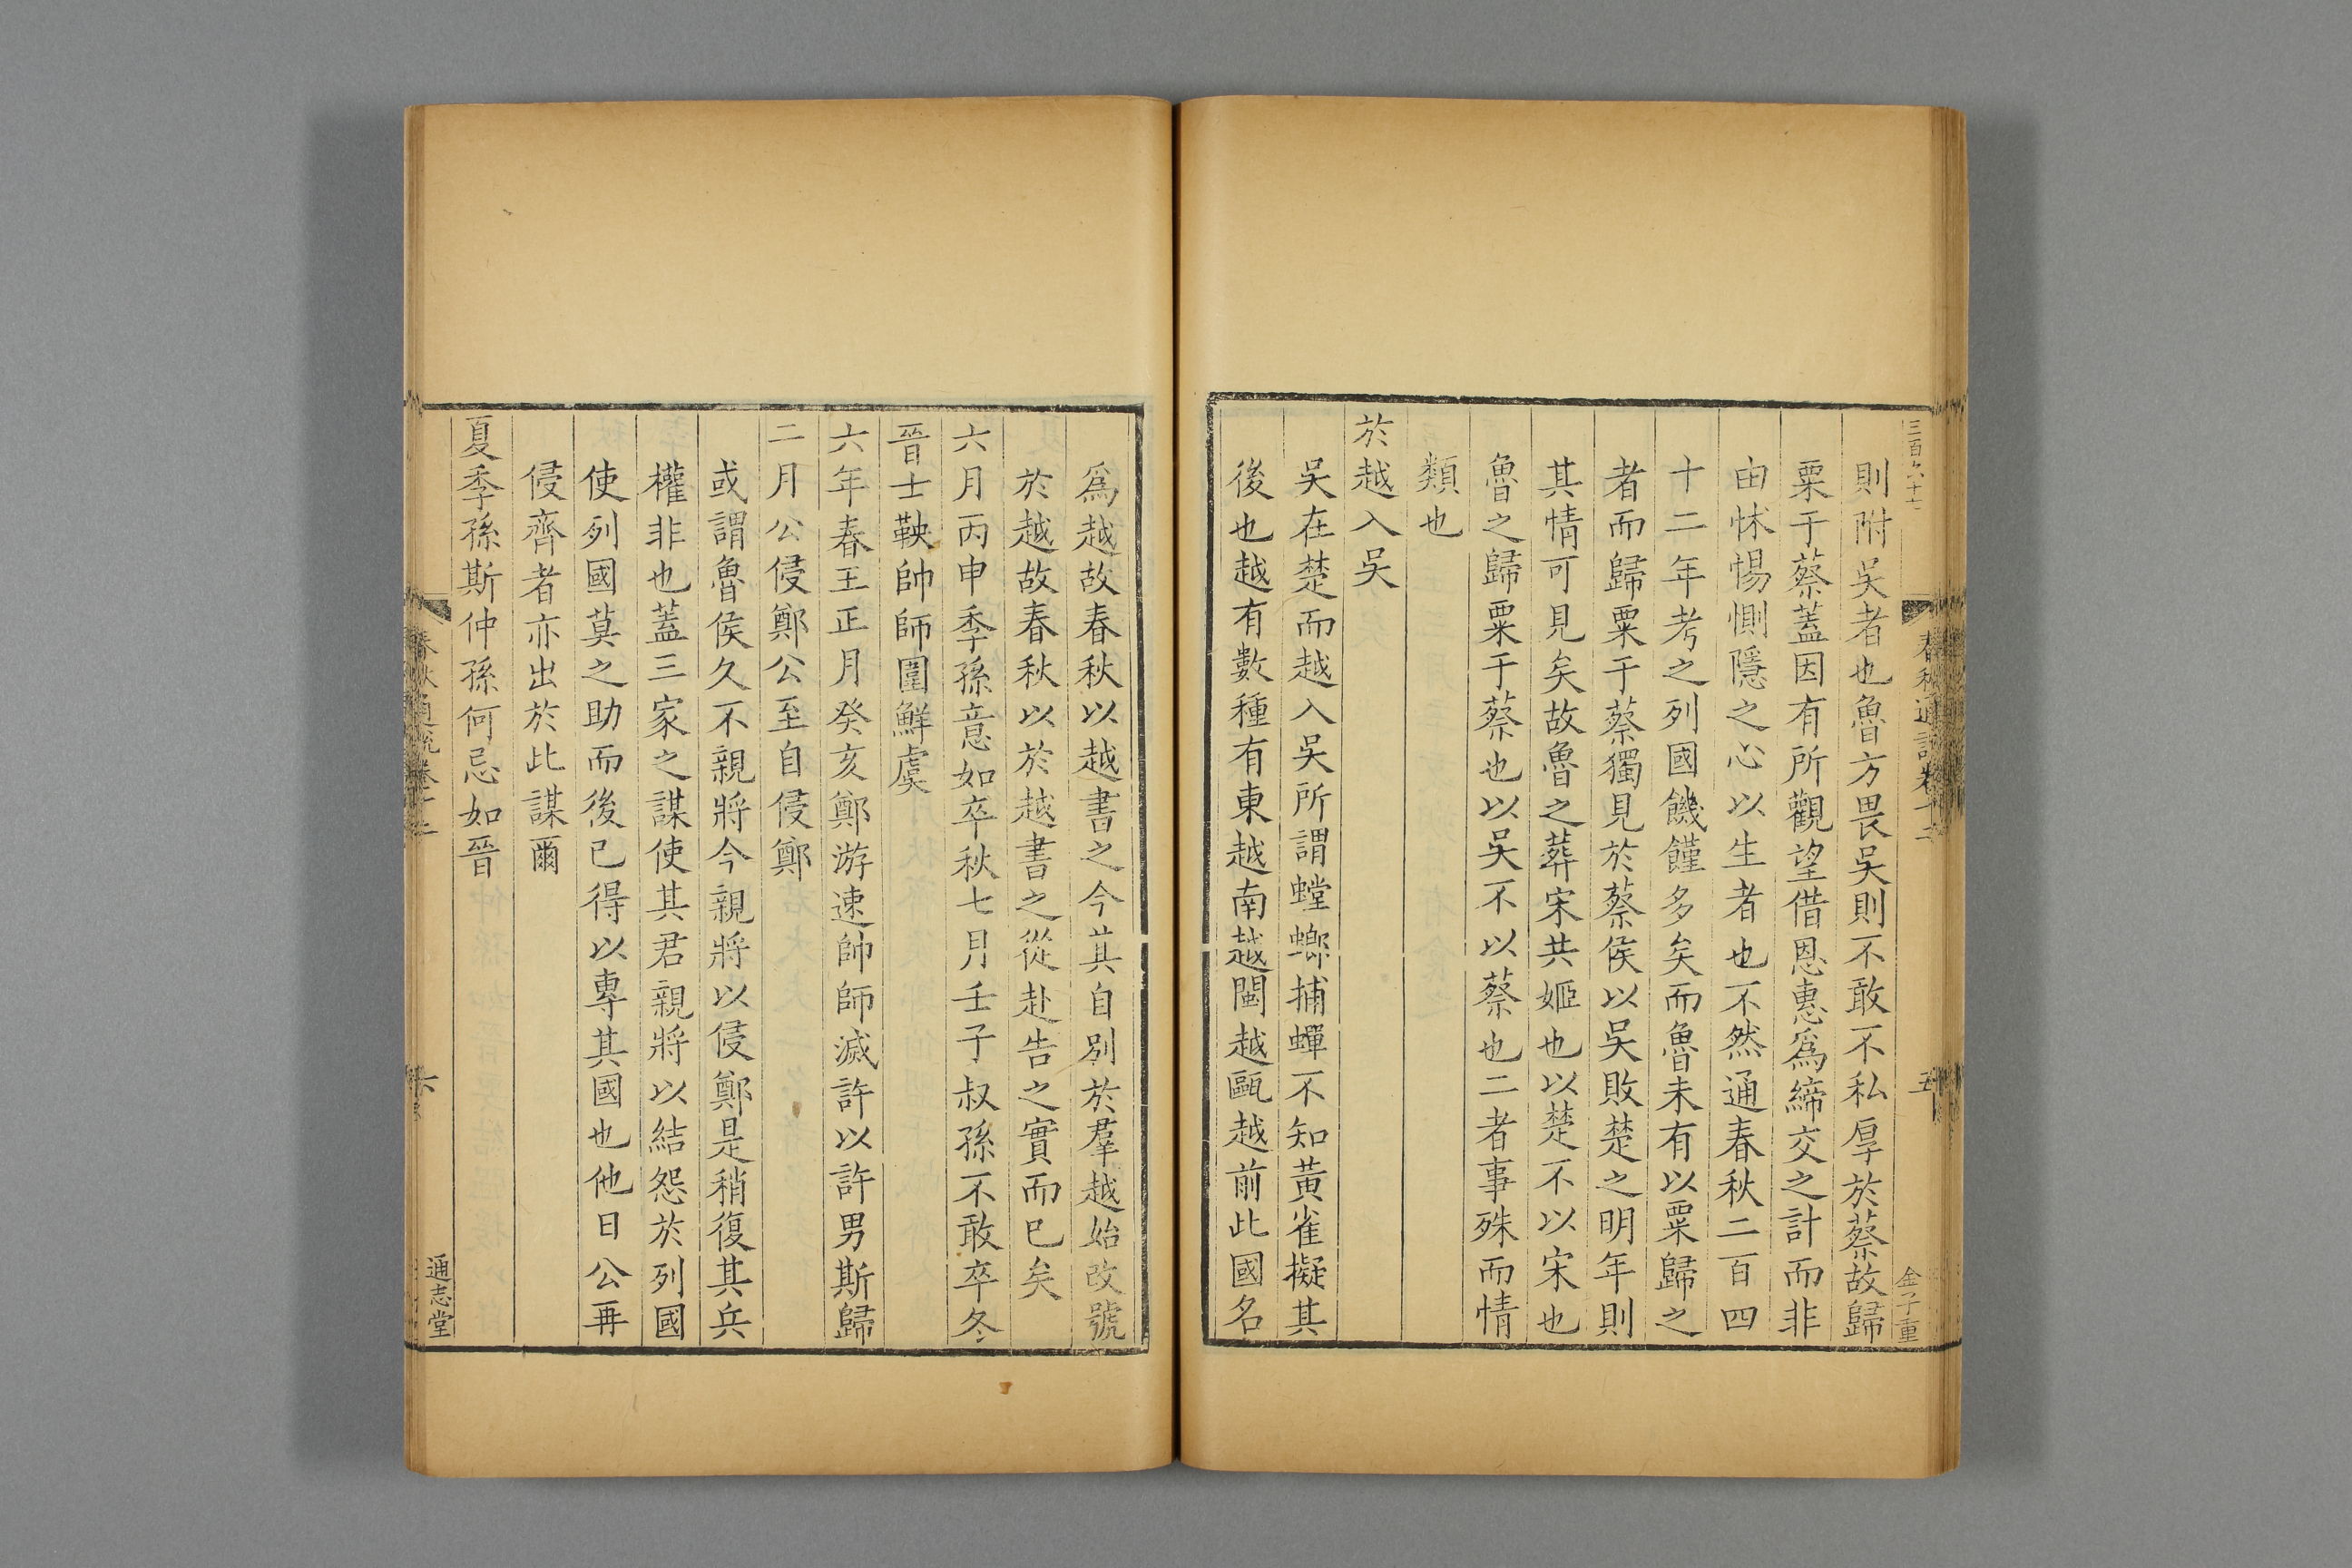 則附吳者也魯方畏吳則不敢不私厚於蔡故歸
粟于蔡蓋因有所觀望借恩惠爲締交之計而非
由怵惕惻隱之心以生者也不然通春秋二百四
十二年考之列國饑饉多矣而魯未有以粟歸之
者而歸粟于蔡獨見於蔡侯以吳敗楚之明年則
其情可見矣故魯之葬宋共姬也以楚不以宋也
魯之歸粟于蔡也以吳不以蔡也二者事殊而情
類也
於越入吳
吳在楚而越入吳所謂螳螂捕蟬不知黃雀擬其
後也越有數種有東越南越閩越甌越前此國名
爲越故春秋以越書之今其自別於羣越始改號
於越故春秋以於越書之從赴告之實而已矣
六月丙申季孫意如卒秋七月壬子叔孫不敢卒冬
晉士鞅帥師圍鮮虞
六年春王正月癸亥鄭游速帥師滅許以許男斯歸
二月公侵鄭公至自侵鄭
或謂魯侯久不親將今親將以侵鄭是稍復其兵
權非也蓋三家之謀使其君親將以結怨於列國
使列國莫之助而後已得以專其國也他日公再
侵齊者亦出於此謀爾
夏季孫斯仲孫何忌如晉
通志堂
金子重
春秋通說卷十二
五
春秋通說卷十二
六